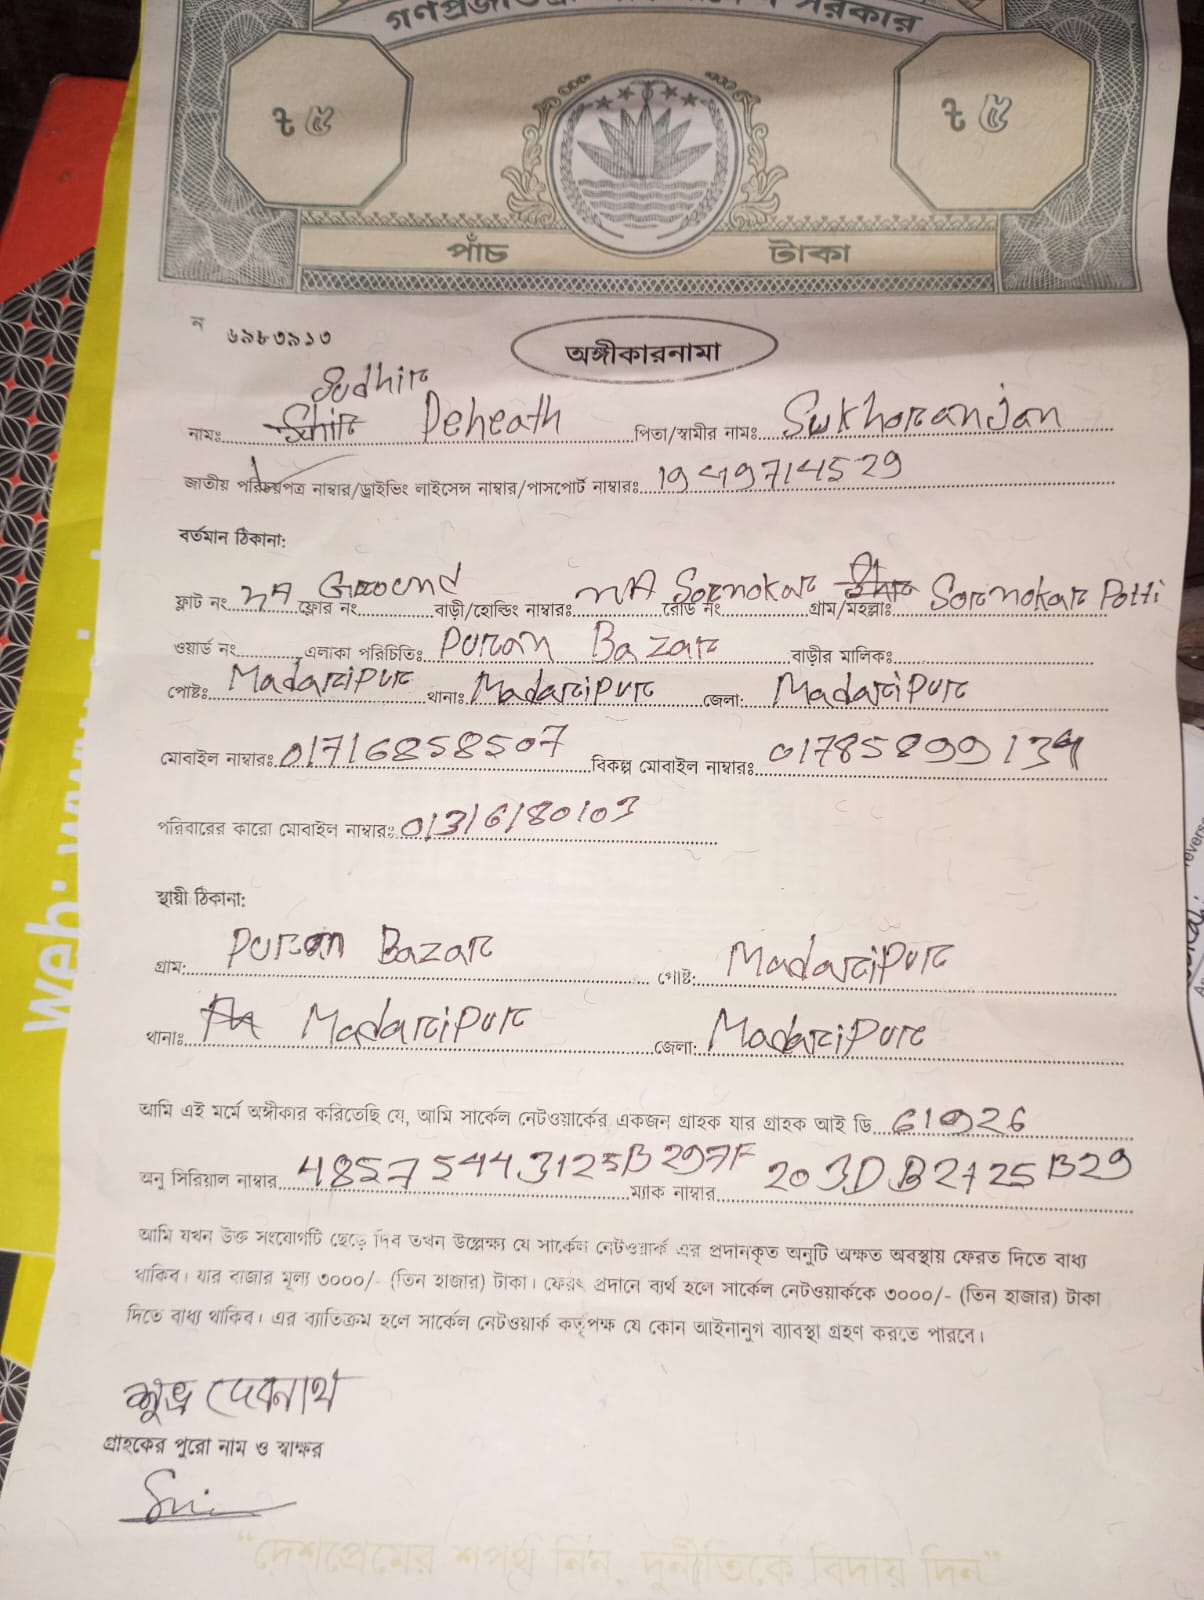 গণপ্রজাতন্ত্রী বাংলাদেশ সরকার
৳ ৫ ৳ ৫
পাঁচ টাকা
ন ৬৯৮৩৯১৩
অঙ্গীকারনামা
Sudhir
নামঃ Debnath পিতা/স্বামীর নামঃ Sukhoranjan
জাতীয় পরিচয়পত্র নাম্বার/ড্রাইভিং লাইসেন্স নাম্বার/পাসপোর্ট নাম্বারঃ 1949714529
বর্তমান ঠিকানা:
ফ্লাট নং NA ফ্লোর নং Ground বাড়ী/হোল্ডিং নাম্বারঃ NA রোড নং Sornokar গ্রাম/মহল্লাঃ Sornokar Potti
ওয়ার্ড নং এলাকা পরিচিতিঃ Puran Bazar বাড়ীর মালিকঃ
পোষ্টঃ Madaripur থানাঃ Madaripur জেলা: Madaripur
মোবাইল নাম্বারঃ 01716858507 বিকল্প মোবাইল নাম্বারঃ 01785899134
পরিবারের কারো মোবাইল নাম্বারঃ 01316180103
স্থায়ী ঠিকানা:
গ্রাম: Puran Bazar পোষ্ট: Madaripur
থানাঃ Madaripur জেলা: Madaripur
আমি এই মর্মে অঙ্গীকার করিতেছি যে, আমি সার্কেল নেটওয়ার্কের একজন গ্রাহক যার গ্রাহক আই ডি 61926
অনু সিরিয়াল নাম্বার 485754443125B297F ম্যাক নাম্বার 203DB2125B29
আমি যখন উক্ত সংযোগটি ছেড়ে দিব তখন উল্লেক্ষ্য যে সার্কেল নেটওয়ার্ক এর প্রদানকৃত অনুটি অক্ষত অবস্থায় ফেরত দিতে বাধ্য
থাকিব। যার বাজার মূল্য ৩০০০/- (তিন হাজার) টাকা। ফেরৎ প্রদানে ব্যর্থ হলে সার্কেল নেটওয়ার্ককে ৩০০০/- (তিন হাজার) টাকা
দিতে বাধ্য থাকিব। এর ব্যাতিক্রম হলে সার্কেল নেটওয়ার্ক কর্তৃপক্ষ যে কোন আইনানুগ ব্যাবস্থা গ্রহণ করতে পারবে।
শুভ্র দেবনাথ
গ্রাহকের পুরো নাম ও স্বাক্ষর
"দেশপ্রেমের শপথ নিন, দুর্নীতিকে বিদায় দিন"
web: